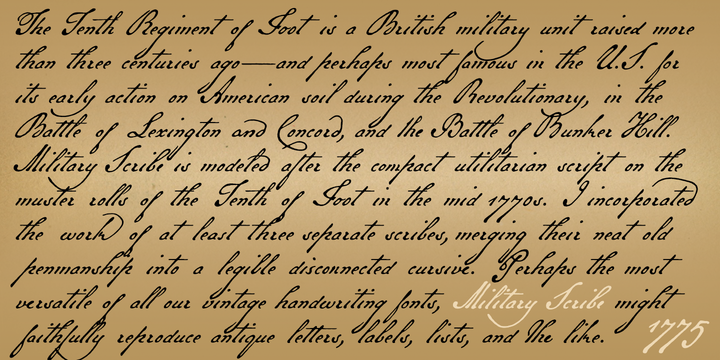 The Tenth Regiment of Foot is a British military unit raised more
than three centuries ago—and perhaps most famous in the U.S. for
its early action on American soil during the Revolutionary, in the
Battle of Lexington and Concord, and the Battle of Bunker Hill.
Military Scribe is modeled after the compact utilitarian script on the
muster rolls of the Tenth of Foot in the mid 1770s. I incorporated
the work of at least three separate scribes, merging their neat old
penmanship into a legible disconnected cursive. Perhaps the most
versatile of all our vintage handwriting fonts, Military Scribe might
faithfully reproduce antique letters, labels, lists, and the like.
1775